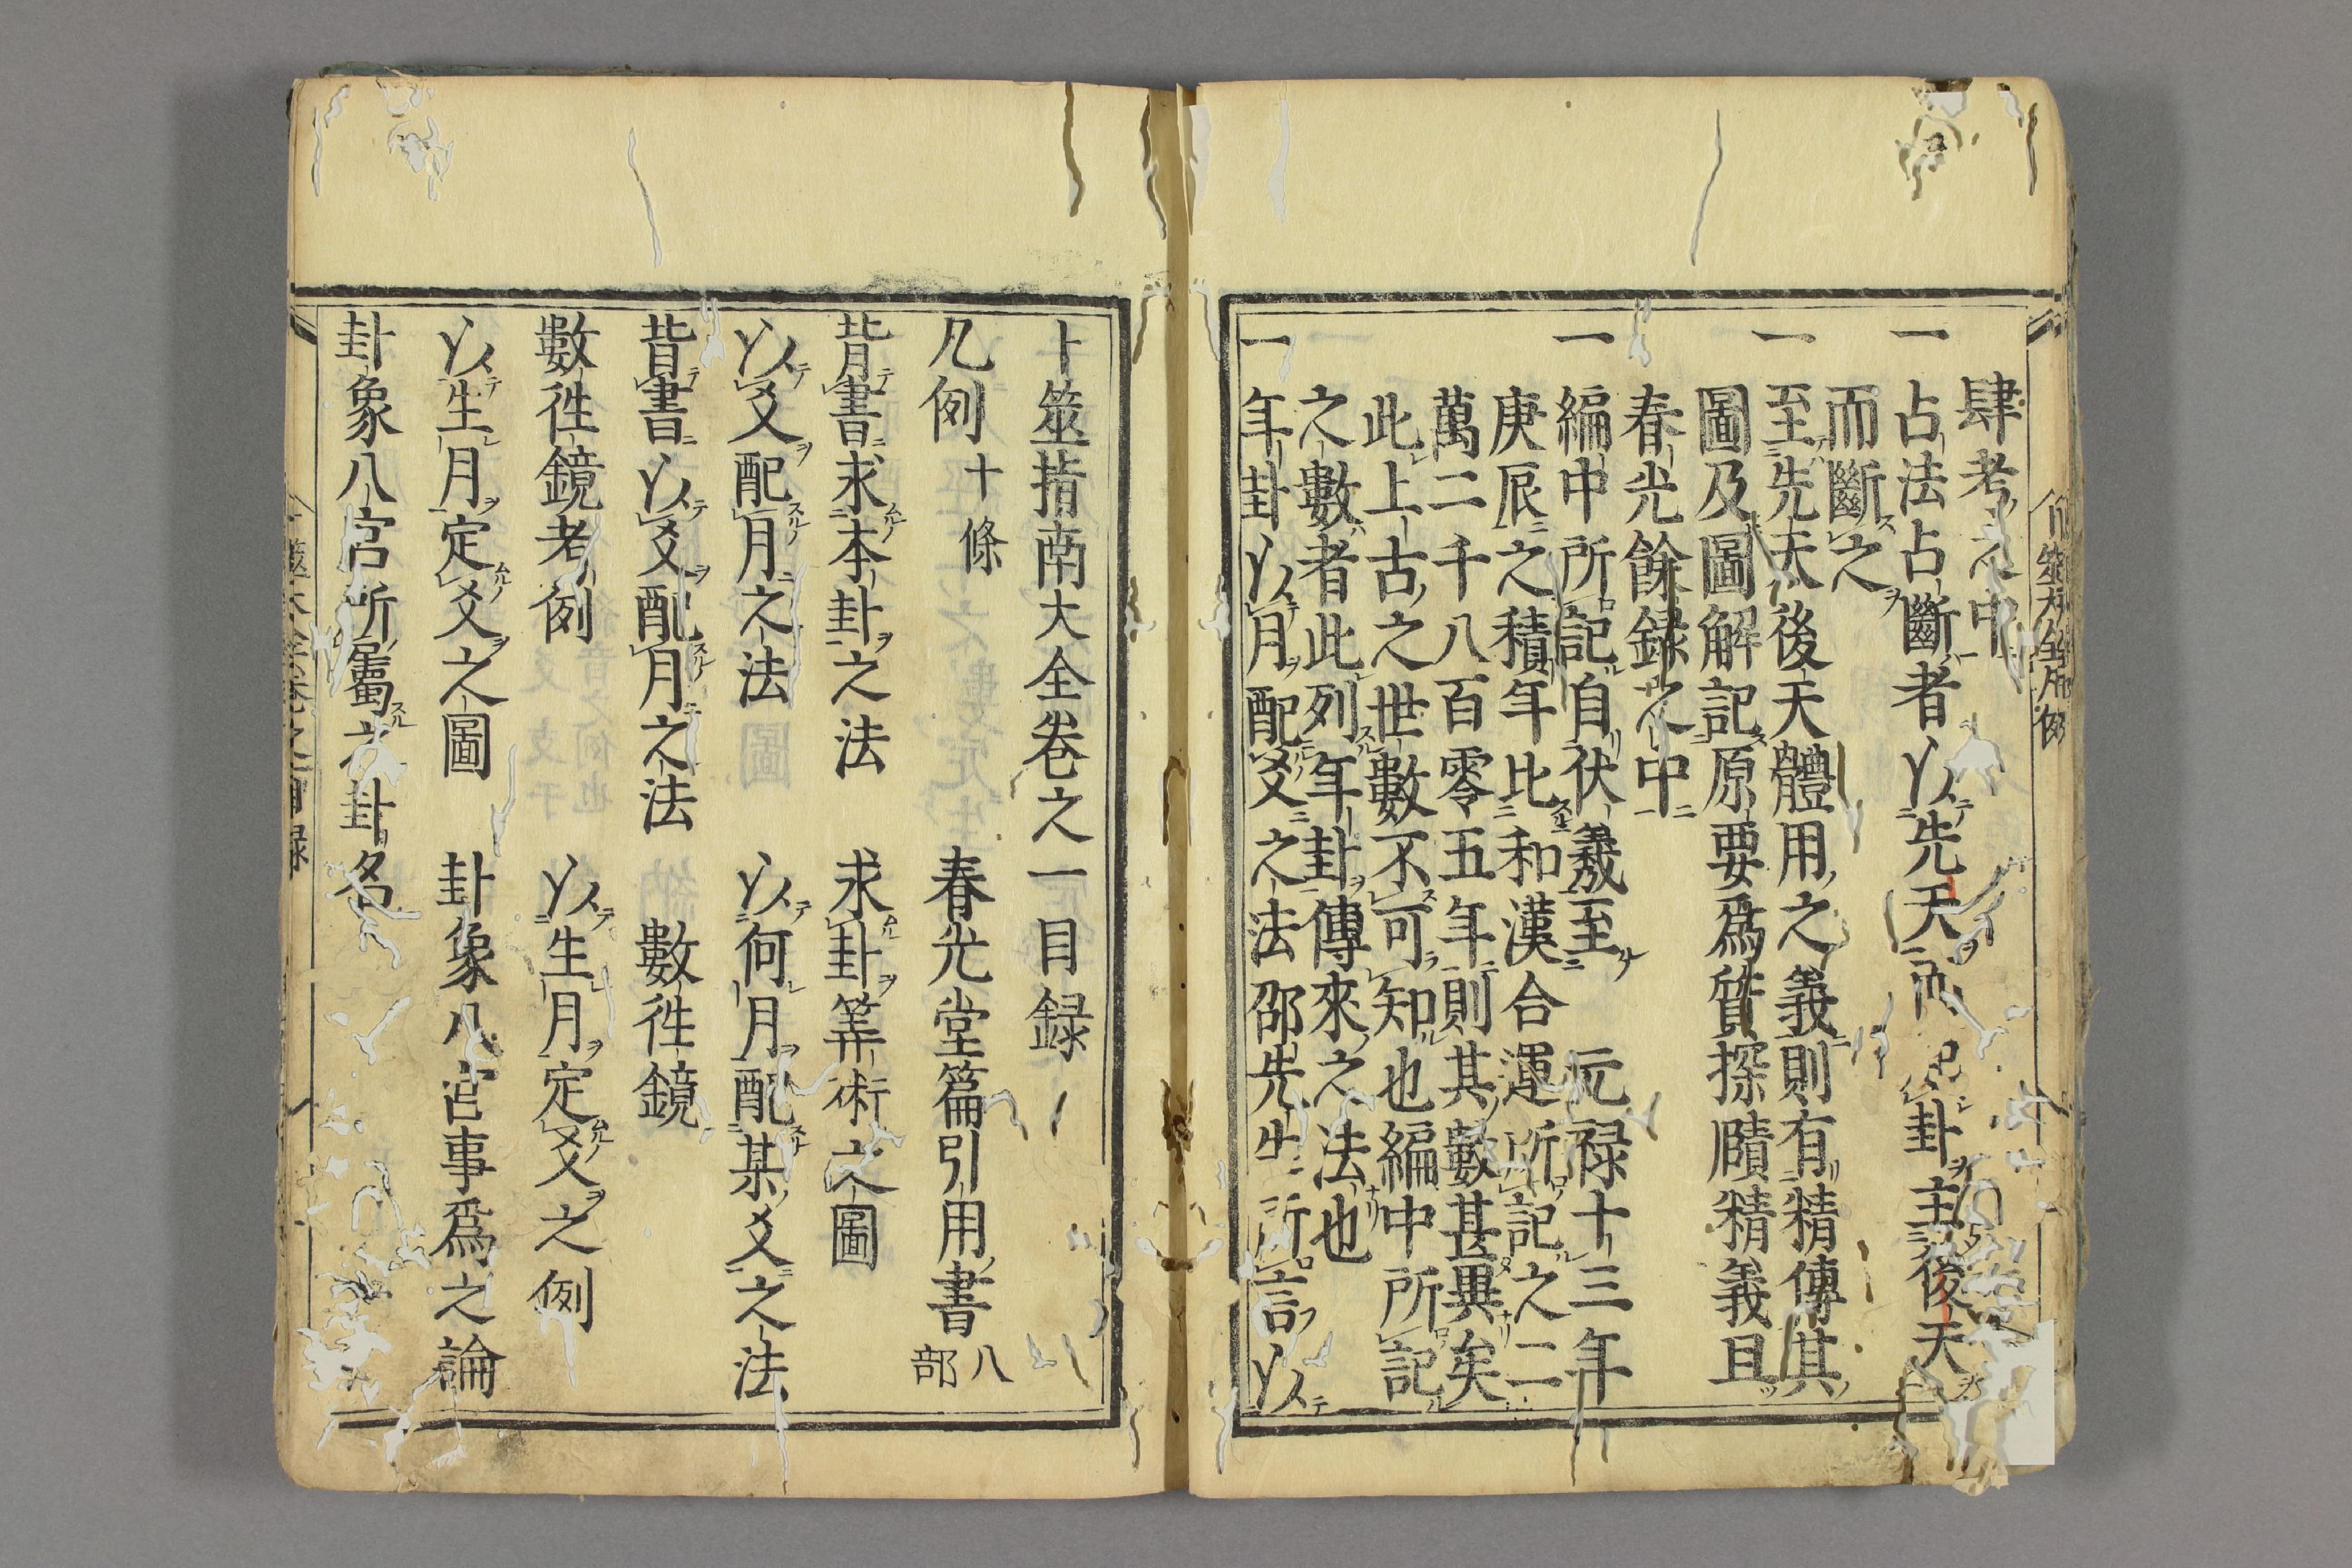 肆考之中
一占法占斷者以先天而起卦主後天
而斷之
一至先天後天體用之義則有精傳其
圖及圖解記原要爲質探賾精義且
春光餘録之中
一編中所記自伏羲至元禄十三年
庚辰之積年比和漢合運所記之二
萬二千八百零五年則其數甚異矣
此上古之世數不可知也編中所記
之數者此列年卦傳來之法也
一年卦以月配爻之法邵先生所言以
卜筮指南大全卷之一目録
凡例十條 春光堂篇引用書八部
背書求本卦之法 求卦筭術之圖
以爻配月之法 以何月配某爻之法
背書以爻配月之法 數徃鏡
數徃鏡考例 以生月定爻之例
以生月定爻之圖 卦象八宮事爲之論
卦象八宮所屬六卦名